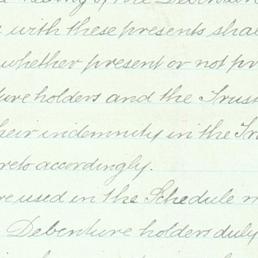 with these presents shall
whether present or not pr
ture holders and the Trus
heir indemnity in the Tr
ereto accordingly.
re used in the Schedule m
Debenture holders duly